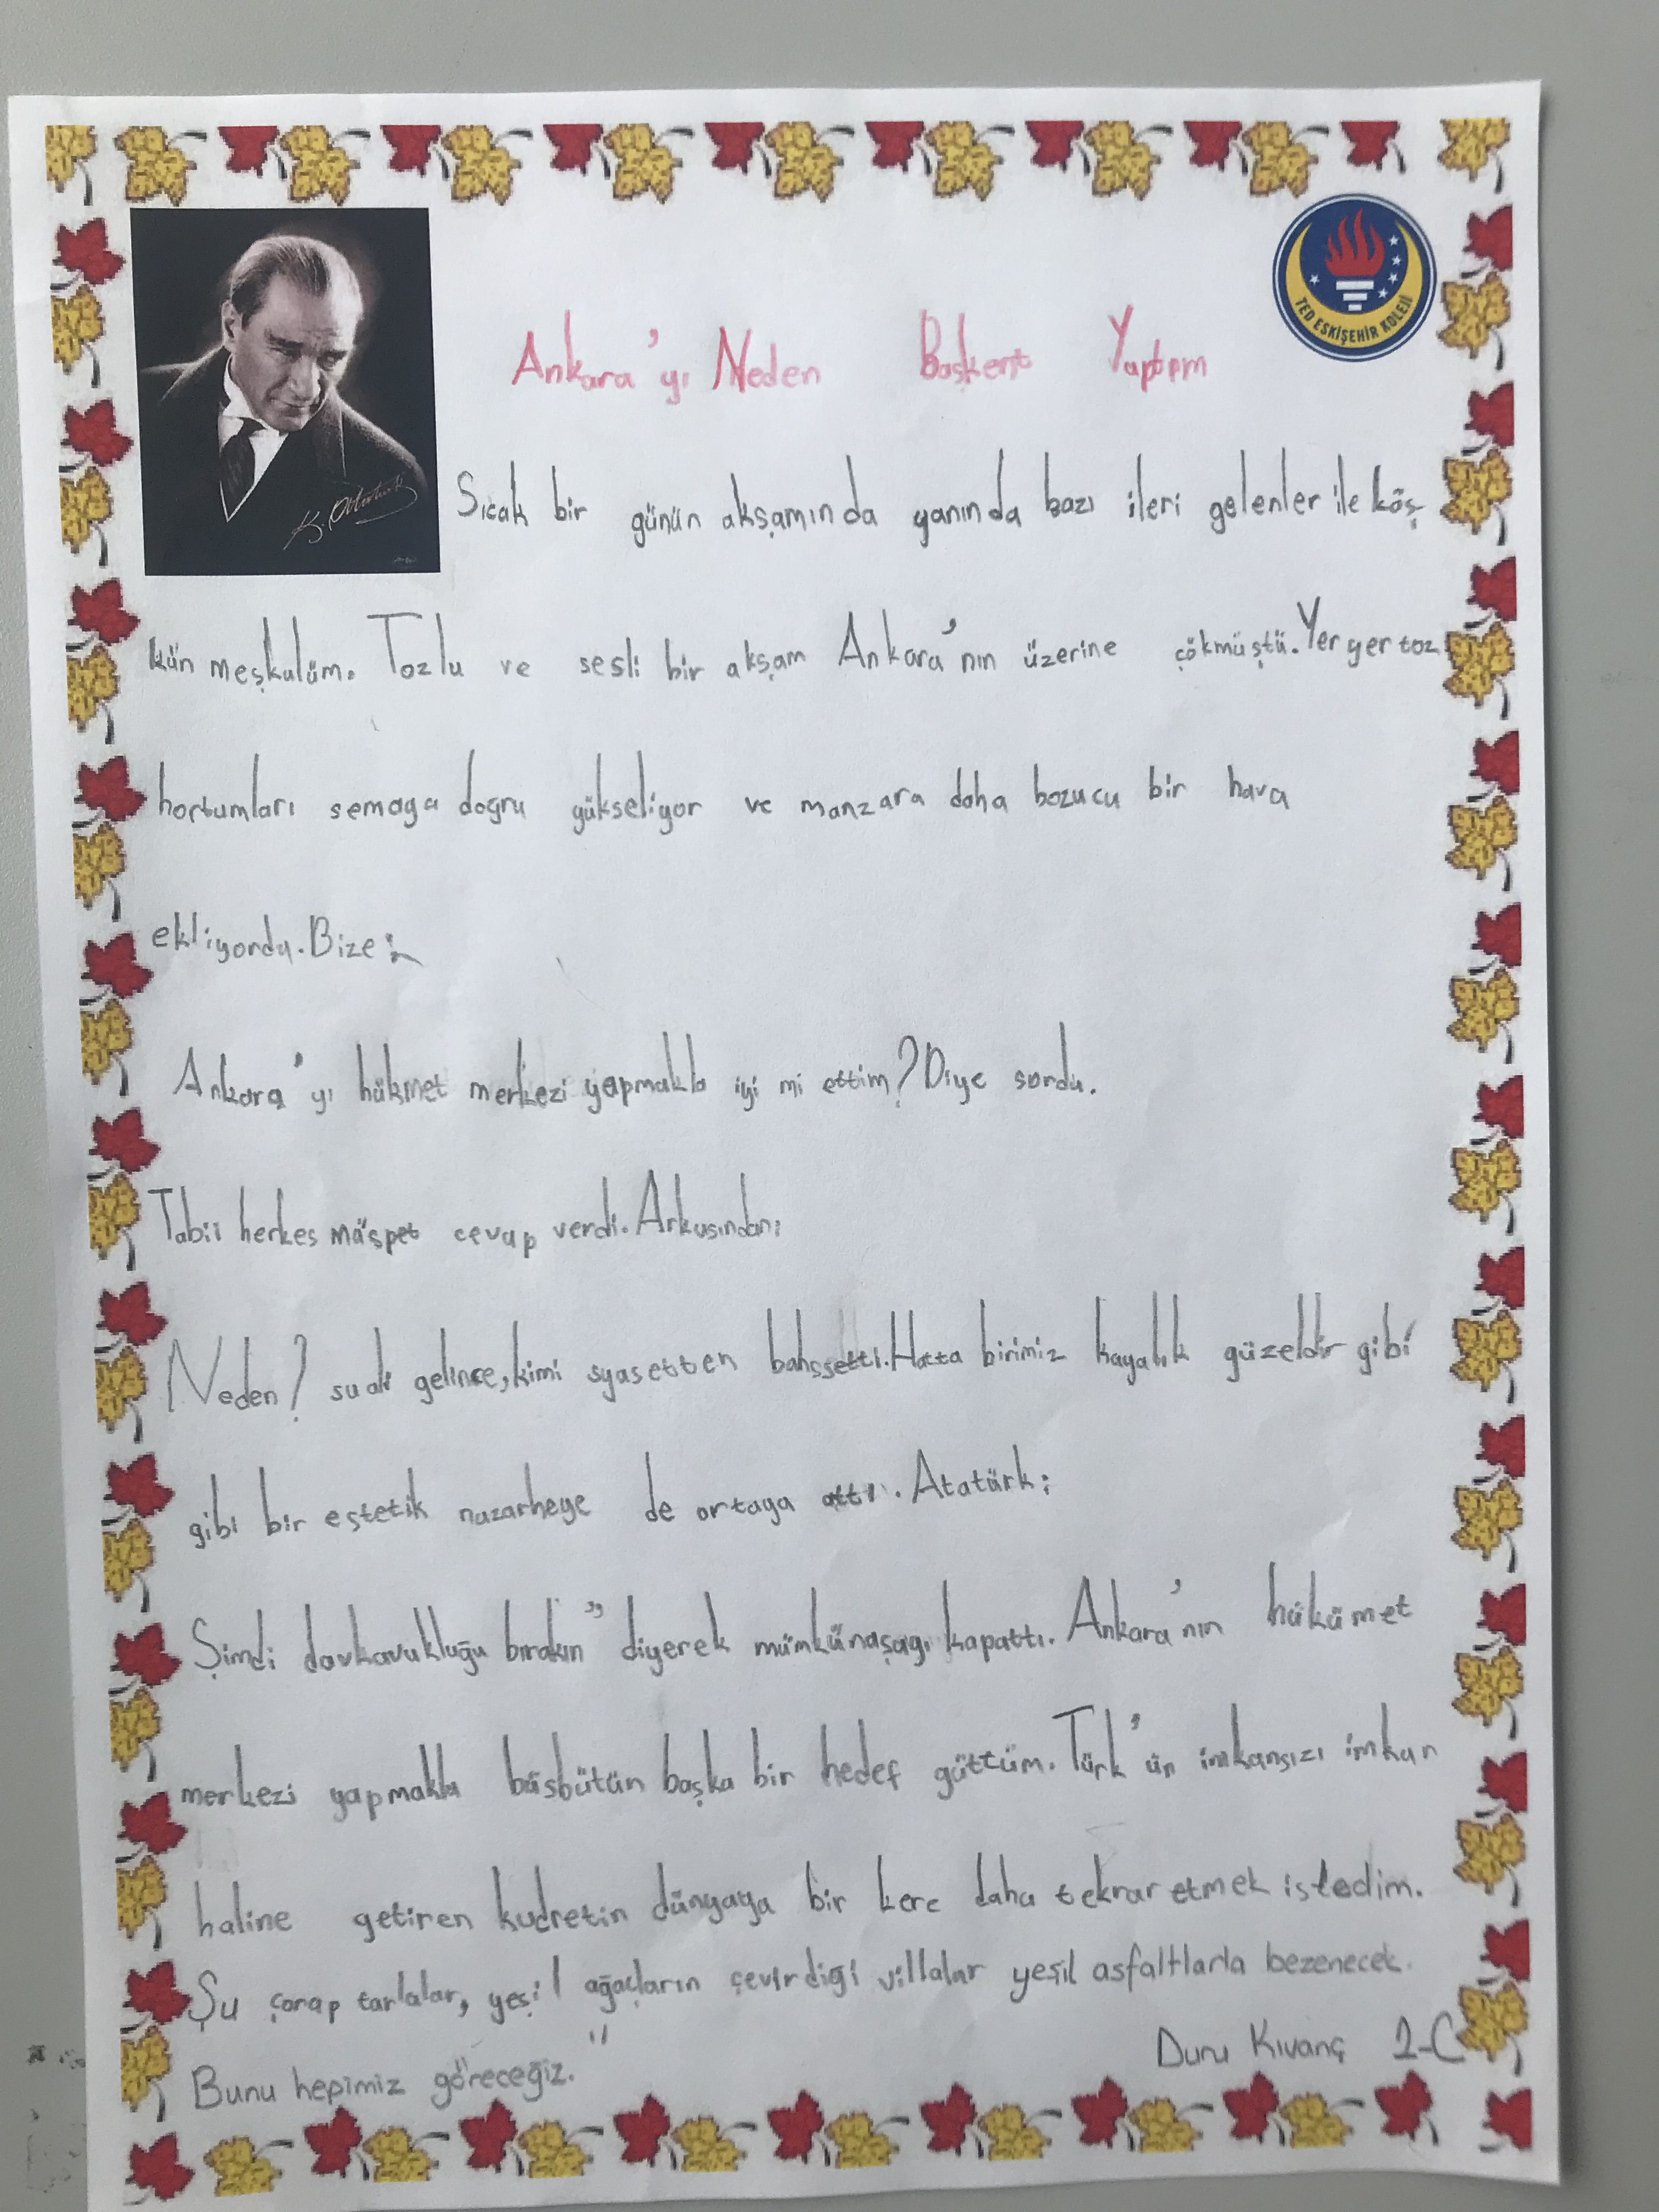 TED ESKİŞEHİR KOLEJİ
K. Atatürk
Ankara'yı Neden Başkent Yaptım
Sıcak bir günün akşamında yanında bazı ileri gelenler ile köş
kün meşkulüm. Tozlu ve sesli bir akşam Ankara'nın üzerine çökmüştü. Yer yer toz
hortumları semaya doğru yükseliyor ve manzara daha bozucu bir hava
ekliyordu. Bize:
Ankara'yı hükmet merkezi yapmakla iyi mi ettim? Diye sordu.
Tabii herkes müspet cevap verdi. Arkasından;
Neden? suali gelince, kimi syasetten bahssetti. Hatta birimiz kayalık güzeldir gibi
gibi bir estetik nazarheye de ortaya attı. Atatürk;
Şimdi davkavukluğu bırakın" diyerek mümkünaşagı kapattı. Ankara'nın hükümet
merkezi yapmakla büsbütün başka bir hedef güttüm. Türk'ün imkansızı imkan
haline getiren kudretin dünyaya bir kere daha tekrar etmek istedim.
Şu çorap tarlalar, yeşil ağaçların çevirdiği villalar yeşil asfaltlarla bezenecek.
Bunu hepimiz göreceğiz."
Duru Kıvanç 2-C